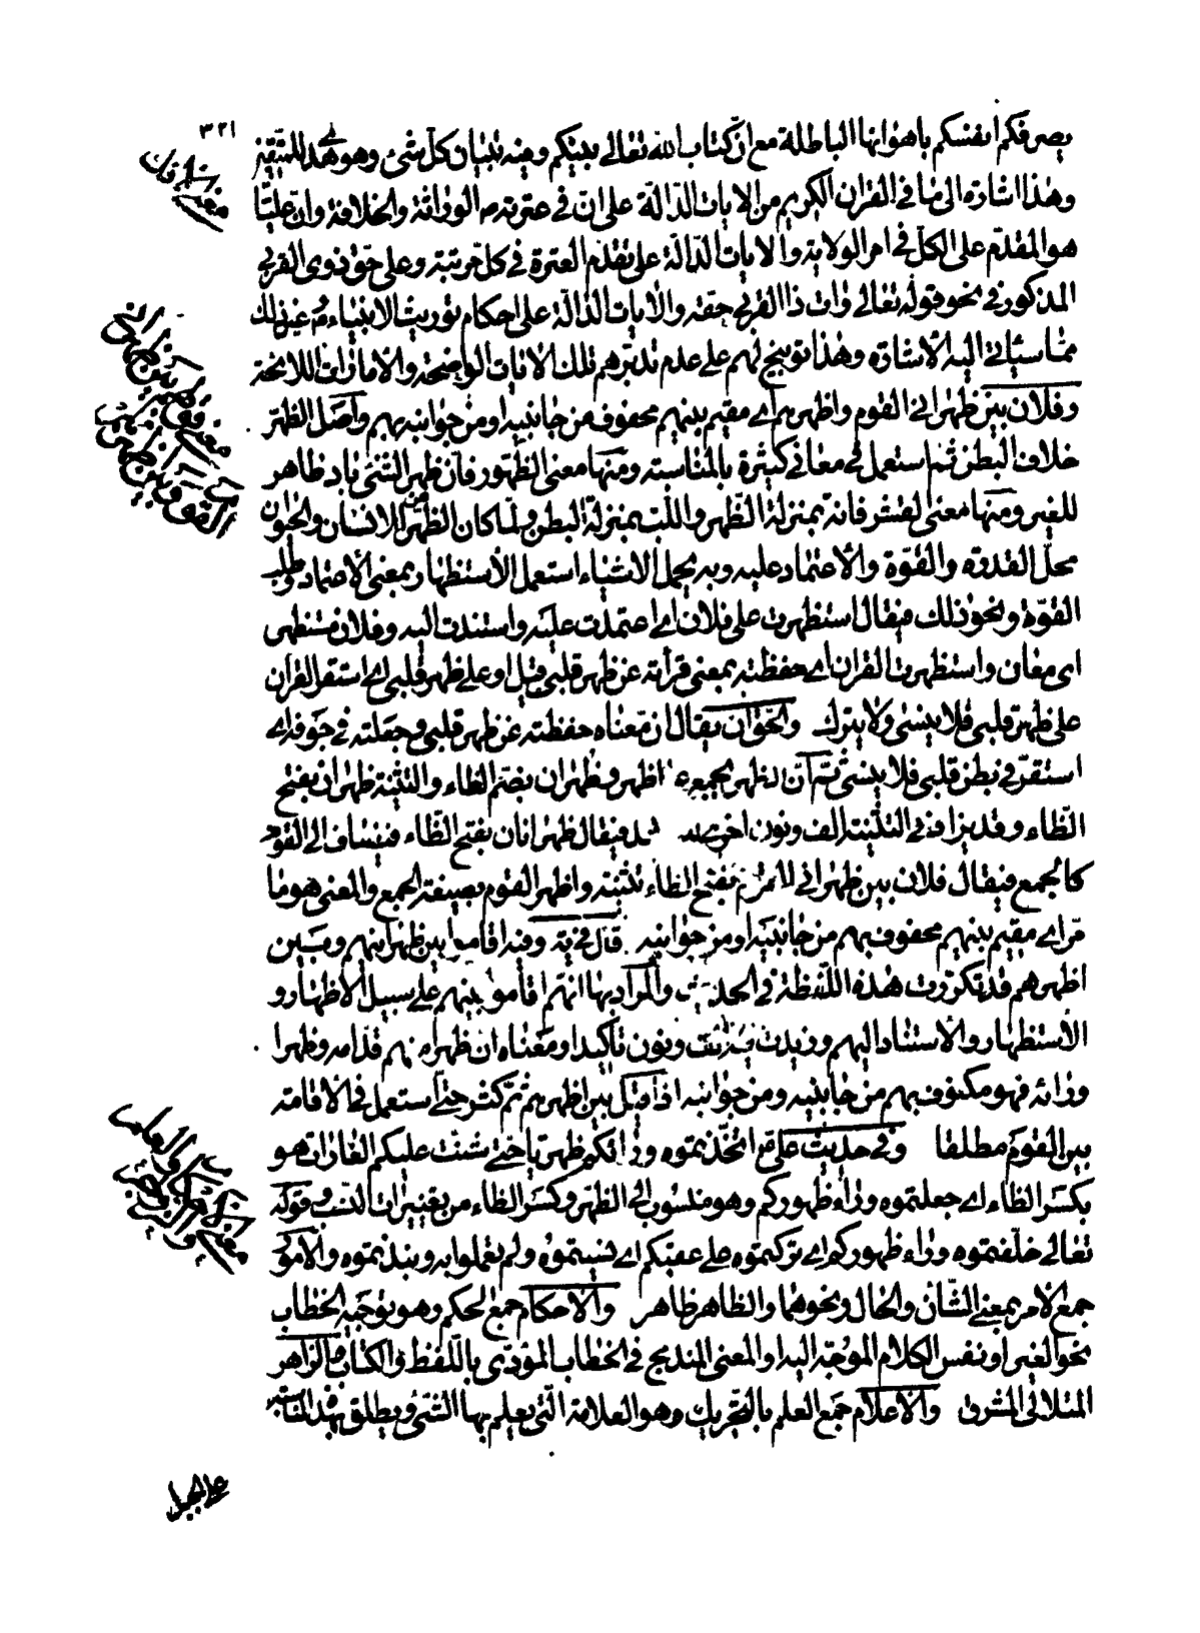 ٣٢١
يصرفكم انفسكم باهوائها الباطلة مع انّ كتاب الله تعالى بينكم وفيه تبيان كل شئ وهو هدى للمتقين
وهذا اشارة الى ما في القران الكريم من الايات الدالة على انّ في عترته الوراثة والخلافة وانّ عليّا
هو المقدّم على الكلّ في امر الولاية والايات الدالة على تقدّم العترة في كلّ مرتبة وعلى حق ذوى القربى
المذكور في نحو قوله تعالى وات ذا القربى حقه والايات الدالة على احكام توريث الانبياء وغير ذلك
ممّا سيأتي اليه الاشارة وهذا توبيخ لهم على عدم تدبّرهم تلك الايات الواضحة والامارات اللائحة
وفلان بين ظهراني القوم واظهرهم اي مقيم بينهم محفوف من جانبيه او من جوانبه بهم واصل الظهر
خلاف البطن ثم استعمل في معاني كثيرة بالمناسبة ومنها معنى الظهور فانّ ظهر الشئ باد ظاهر
للغير ومنها معنى القشر فانه بمنزلة الظهر واللب بمنزلة البطن ولما كان الظهر من الانسان والحيوان
محلّ القدرة والقوّة والاعتماد عليه وبه يحمل الاشياء استعمل الاستظهار بمعنى الاعتماد وطلب
القوّة ونحو ذلك فيقال استظهرت على فلان اي اعتمدت عليه واستندت اليه وفلان مستظهر
اى معان واستظهرت القران اي حفظته بمعنى قرأته عن ظهر قلبي قيل او على ظهر قلبي اي استقر القران
على ظهر قلبي فلا ينسى ولا يترك والحق ان يقال ان معناه حفظته عن ظهر قلبي وجعلته في جوفه اي
استقرّ في بطن قلبي فلا ينسى ثم ان الظهر يجمع على اظهر وظهران بضم الظاء والتثنية ظهران بفتح
الظاء وقد يزاد في التثنية الف ونون اخرى فيقال ظهرانان بفتح الظاء فيضاف الى القوم
كالجمع فيقال فلان بين ظهراني القوم بفتح الظاء تثنية واظهر القوم بصيغة الجمع والمعنى هو ما
مرّ اي مقيم بينهم محفوف بهم من جانبيه او من جوانبه قال في يه وفيه اقاموا بين ظهرانيهم وبين
اظهرهم قد تكررت هذه اللفظة في الحديث والمراد بها انهم اقاموا بينهم على سبيل الاظهار و
الاستظهار والاستناد اليهم وزيدت فيه الف ونون تاكيدا ومعناه ان ظهرا منهم قدّامه وظهرا
ورائه فهو مكنوف بهم من جانبيه ومن جوانبه اذا قيل بين اظهرهم ثم كثر حتى استعمل في الاقامة
بين القوم مطلقا وفي حديث علي ع اتخذتموه ورائكم ظهريا حتى شنت عليكم الغارات هو
بكسر الظاء اي جعلتموه وراء ظهوركم وهو منسوب الى الظهر وكسر الظاء من تغييرات النسب وقوله
تعالى خلفتموه وراء ظهوركم اي تركتموه على عقبكم اي نسيتموه ولم تعملوا به ونبذتموه والامور
جمع الامر بمعنى الشأن والحال ونحوهما والظاهر ظاهر والاحكام جمع الحكم وهو توجيه الخطاب
نحو الغير او نفس الكلام الموجّه اليه او المعنى المندرج في الخطاب المؤدّى باللفظ والكتاب والزاهر
المتلالئ المشرق والاعلام جمع العلم بالتحريك وهو العلامة التى يعلم بها الشئ ويطلق بهذه المناسبة
على الجبل